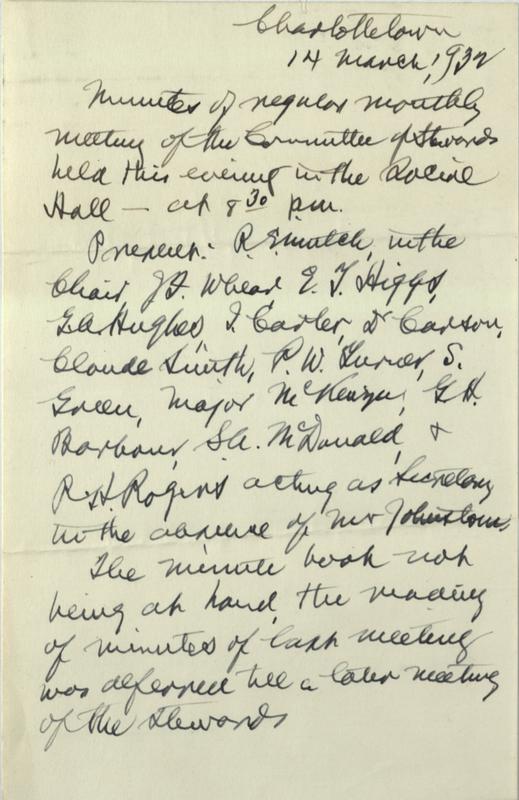 Charlottetown
14 March, 1932
Minutes of regular monthly
meeting of the Committee of Stewards
held this evening in the Social
Hall – at 8 30 p.m.
Present: R. E. Mutch, in the
Chair, J. F. Whear, E. T. Higgs,
G. A. Hughes, I. Carter, D. Carson,
Claude Smith, P. W. Turner, S.
Green, Major McKenzie, G. H.
Barbour, S. A. McDonald, &
R. H. Rogers acting as Secretary
in the absence of Mr Johnstone,
The minute book not
being at hand, the reading
of minutes of last meeting
was deferred till a later meeting
of the Stewards